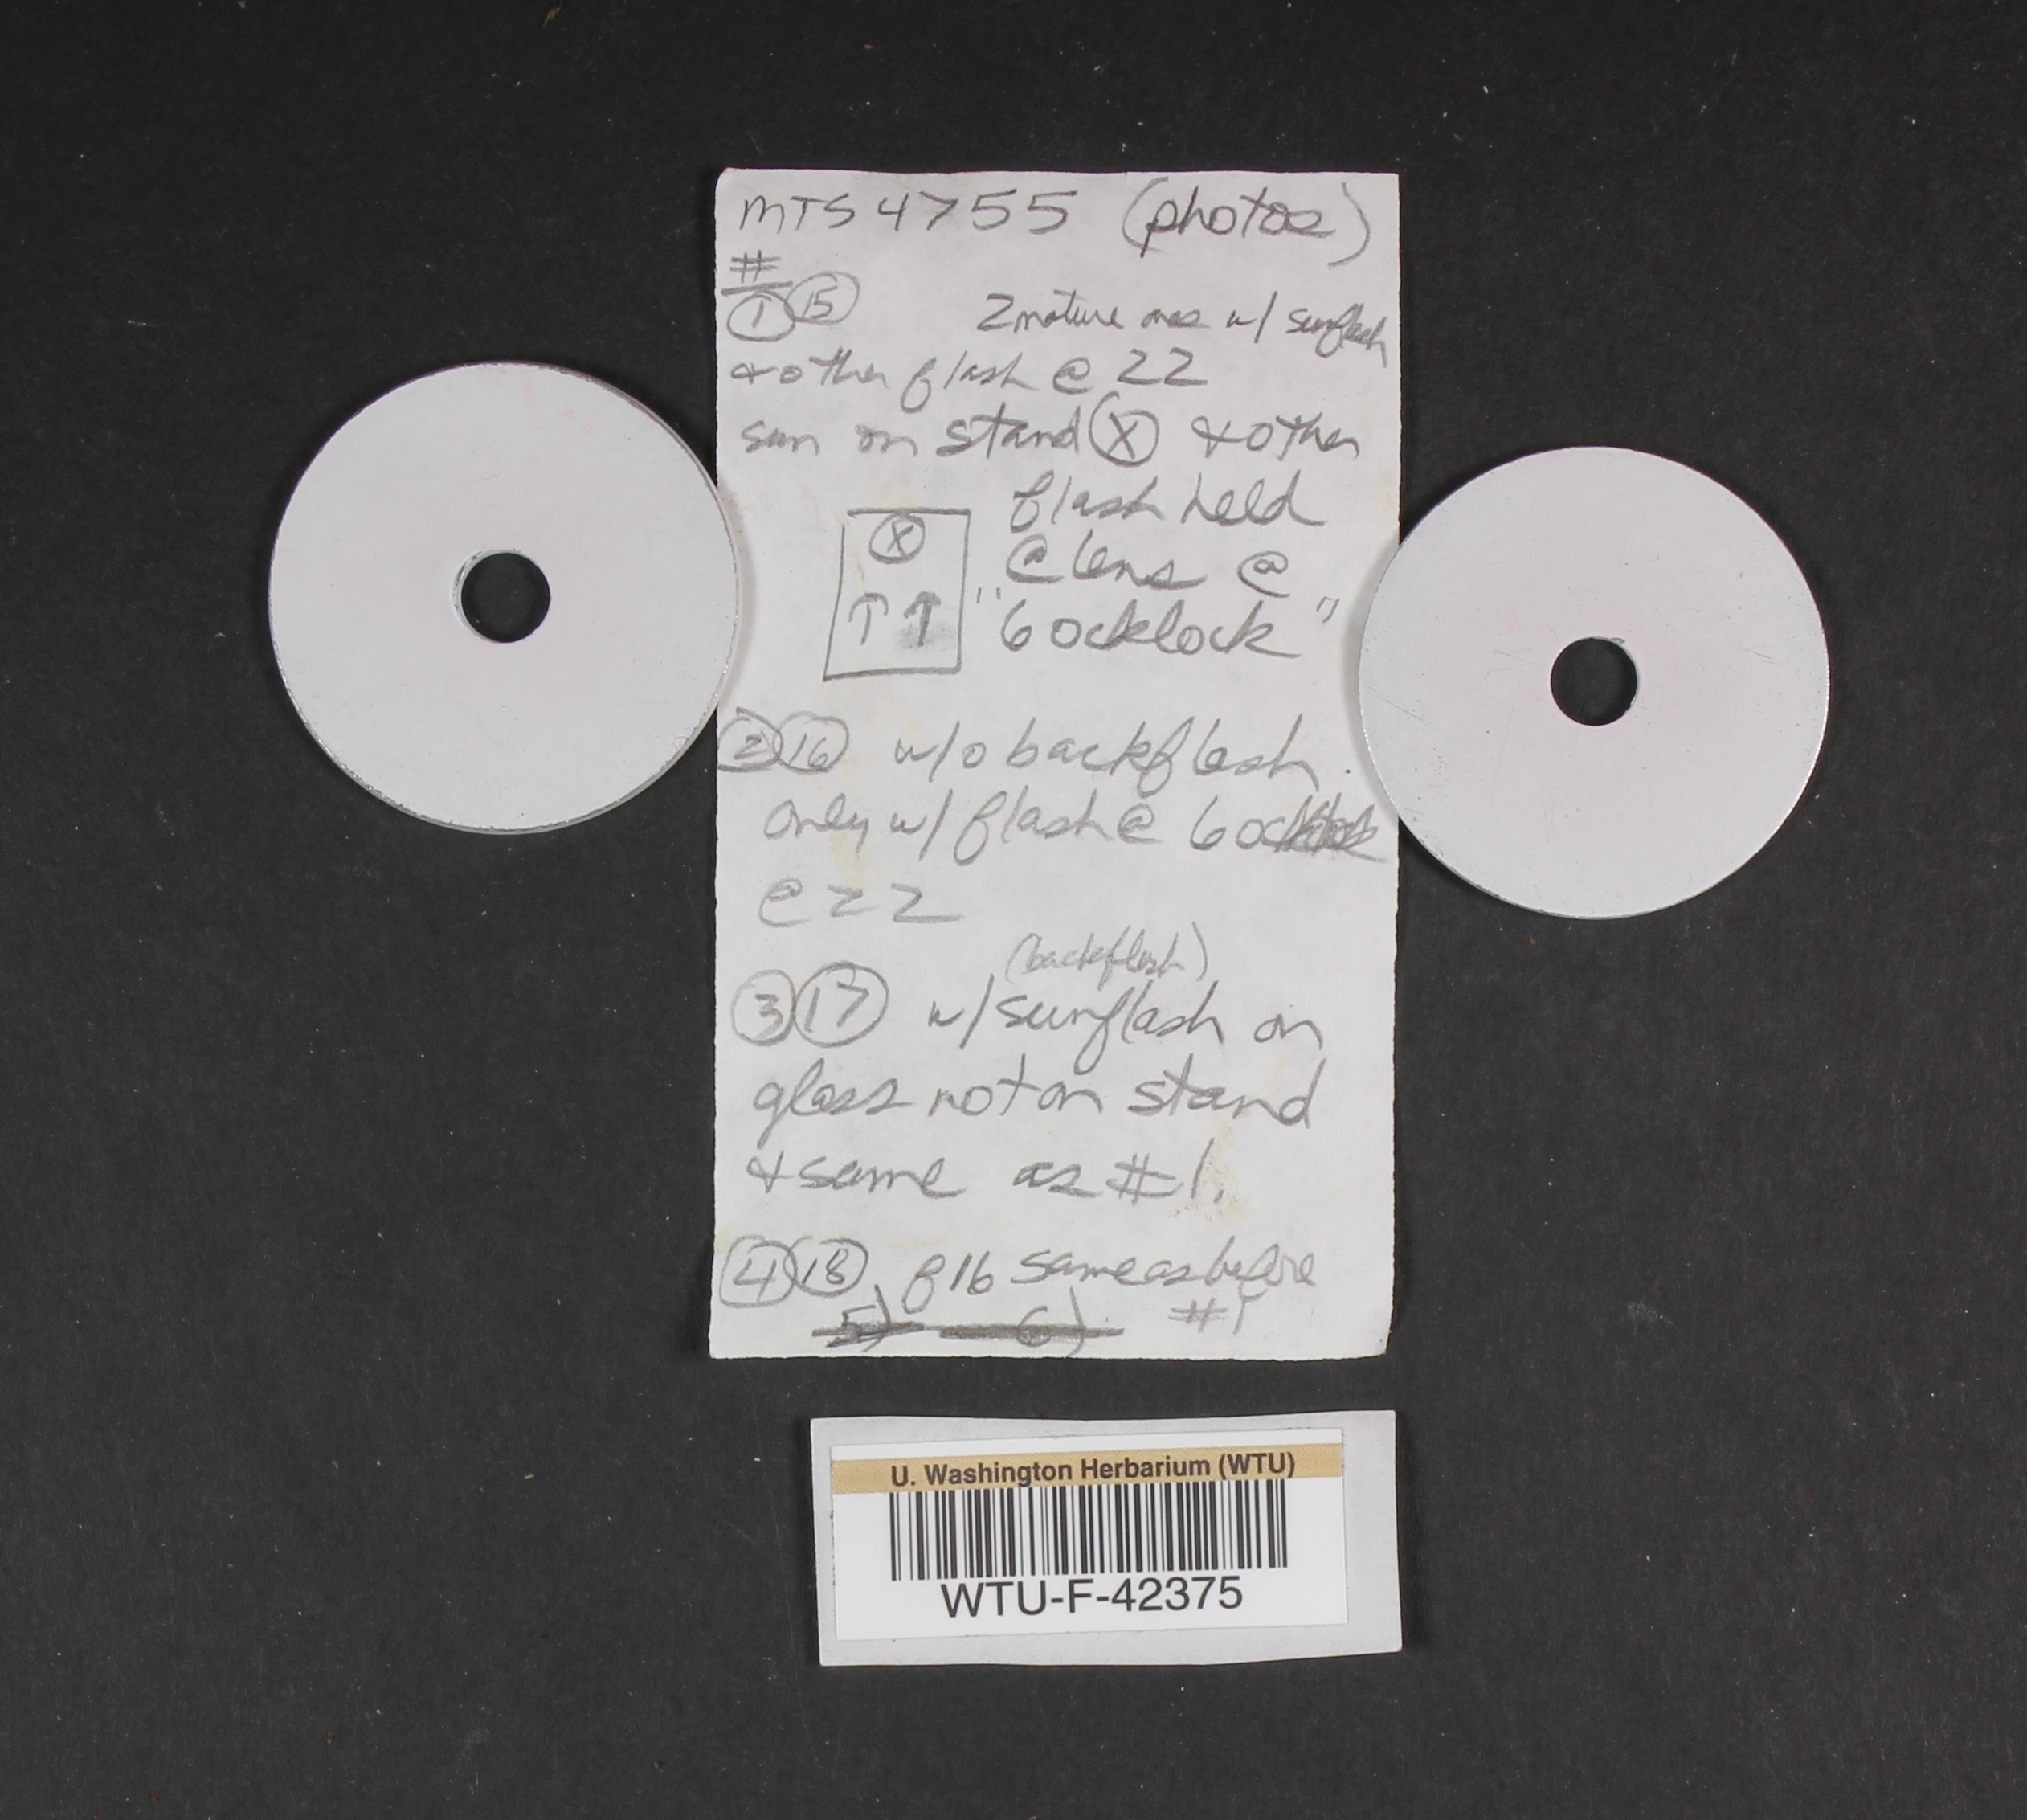 MTS 4755 (photos)
#
1 15 2 mature ones w/ sunflash
& other flash @ 22
sun on stand X & other
flash held
X @ lens @
"6 ocklock"
2 16 w/o backflash.
only w/ flash @ 6 ocklock
@ 22
(backflash)
3 17 w/ sunflash on
glass not on stand
& same as #1.
4 18 f16 same as before
5) 6) #1
U. Washington Herbarium (WTU)
WTU-F-42375